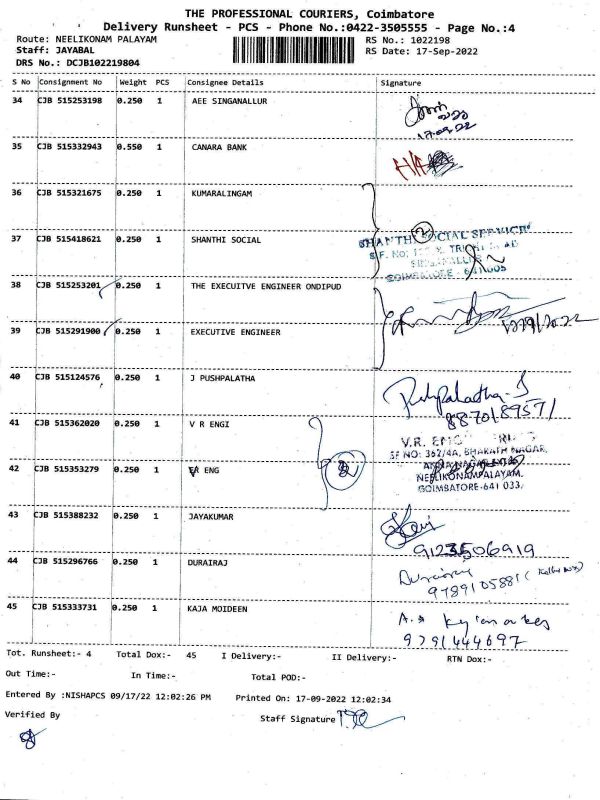 THE PROFESSIONAL COURIERS, Coimbatore
Delivery Runsheet - PCS - Phone No.:0422-3505555 - Page No.:4
Route: NEELIKONAM PALAYAM RS No.: 1022198
Staff: JAYABAL RS Date: 17-Sep-2022
DRS No.: DCJB102219804
S No Consignment No Weight PCS Consignee Details Signature
34 CJB 515253198 0.250 1 AEE SINGANALLUR
17.09.22
35 CJB 515332943 0.550 1 CANARA BANK
36 CJB 515321675 0.250 1 KUMARALINGAM
37 CJB 515418621 0.250 1 SHANTHI SOCIAL
2
SHANTHI SOCIAL SERVICE
S.F. NO:
SINGANALLUR
COIMBATORE - 641 005
38 CJB 515253201 0.250 1 THE EXECUITVE ENGINEER ONDIPUD
39 CJB 515291900 0.250 1 EXECUTIVE ENGINEER
40 CJB 515124576 0.250 1 J PUSHPALATHA
Pushpalatha-J
8870189571
41 CJB 515362020 0.250 1 V R ENGI
V.R.
SF NO: 362/4A, BHARATH NAGAR,
42 CJB 515353279 0.250 1 ER ENG
2
ANNA NAGAR
NEELIKONAMPALAYAM.
COIMBATORE-641 033.
43 CJB 515388232 0.250 1 JAYAKUMAR
9123506919
44 CJB 515296766 0.250 1 DURAIRAJ
Durairaj
9789105881
45 CJB 515333731 0.250 1 KAJA MOIDEEN
9791444697
Tot. Runsheet:- 4 Total Dox:- 45 I Delivery:- II Delivery:- RTN Dox:-
Out Time:- In Time:- Total POD:-
Entered By :NISHAPCS 09/17/22 12:02:26 PM Printed On: 17-09-2022 12:02:34
Verified By Staff Signature